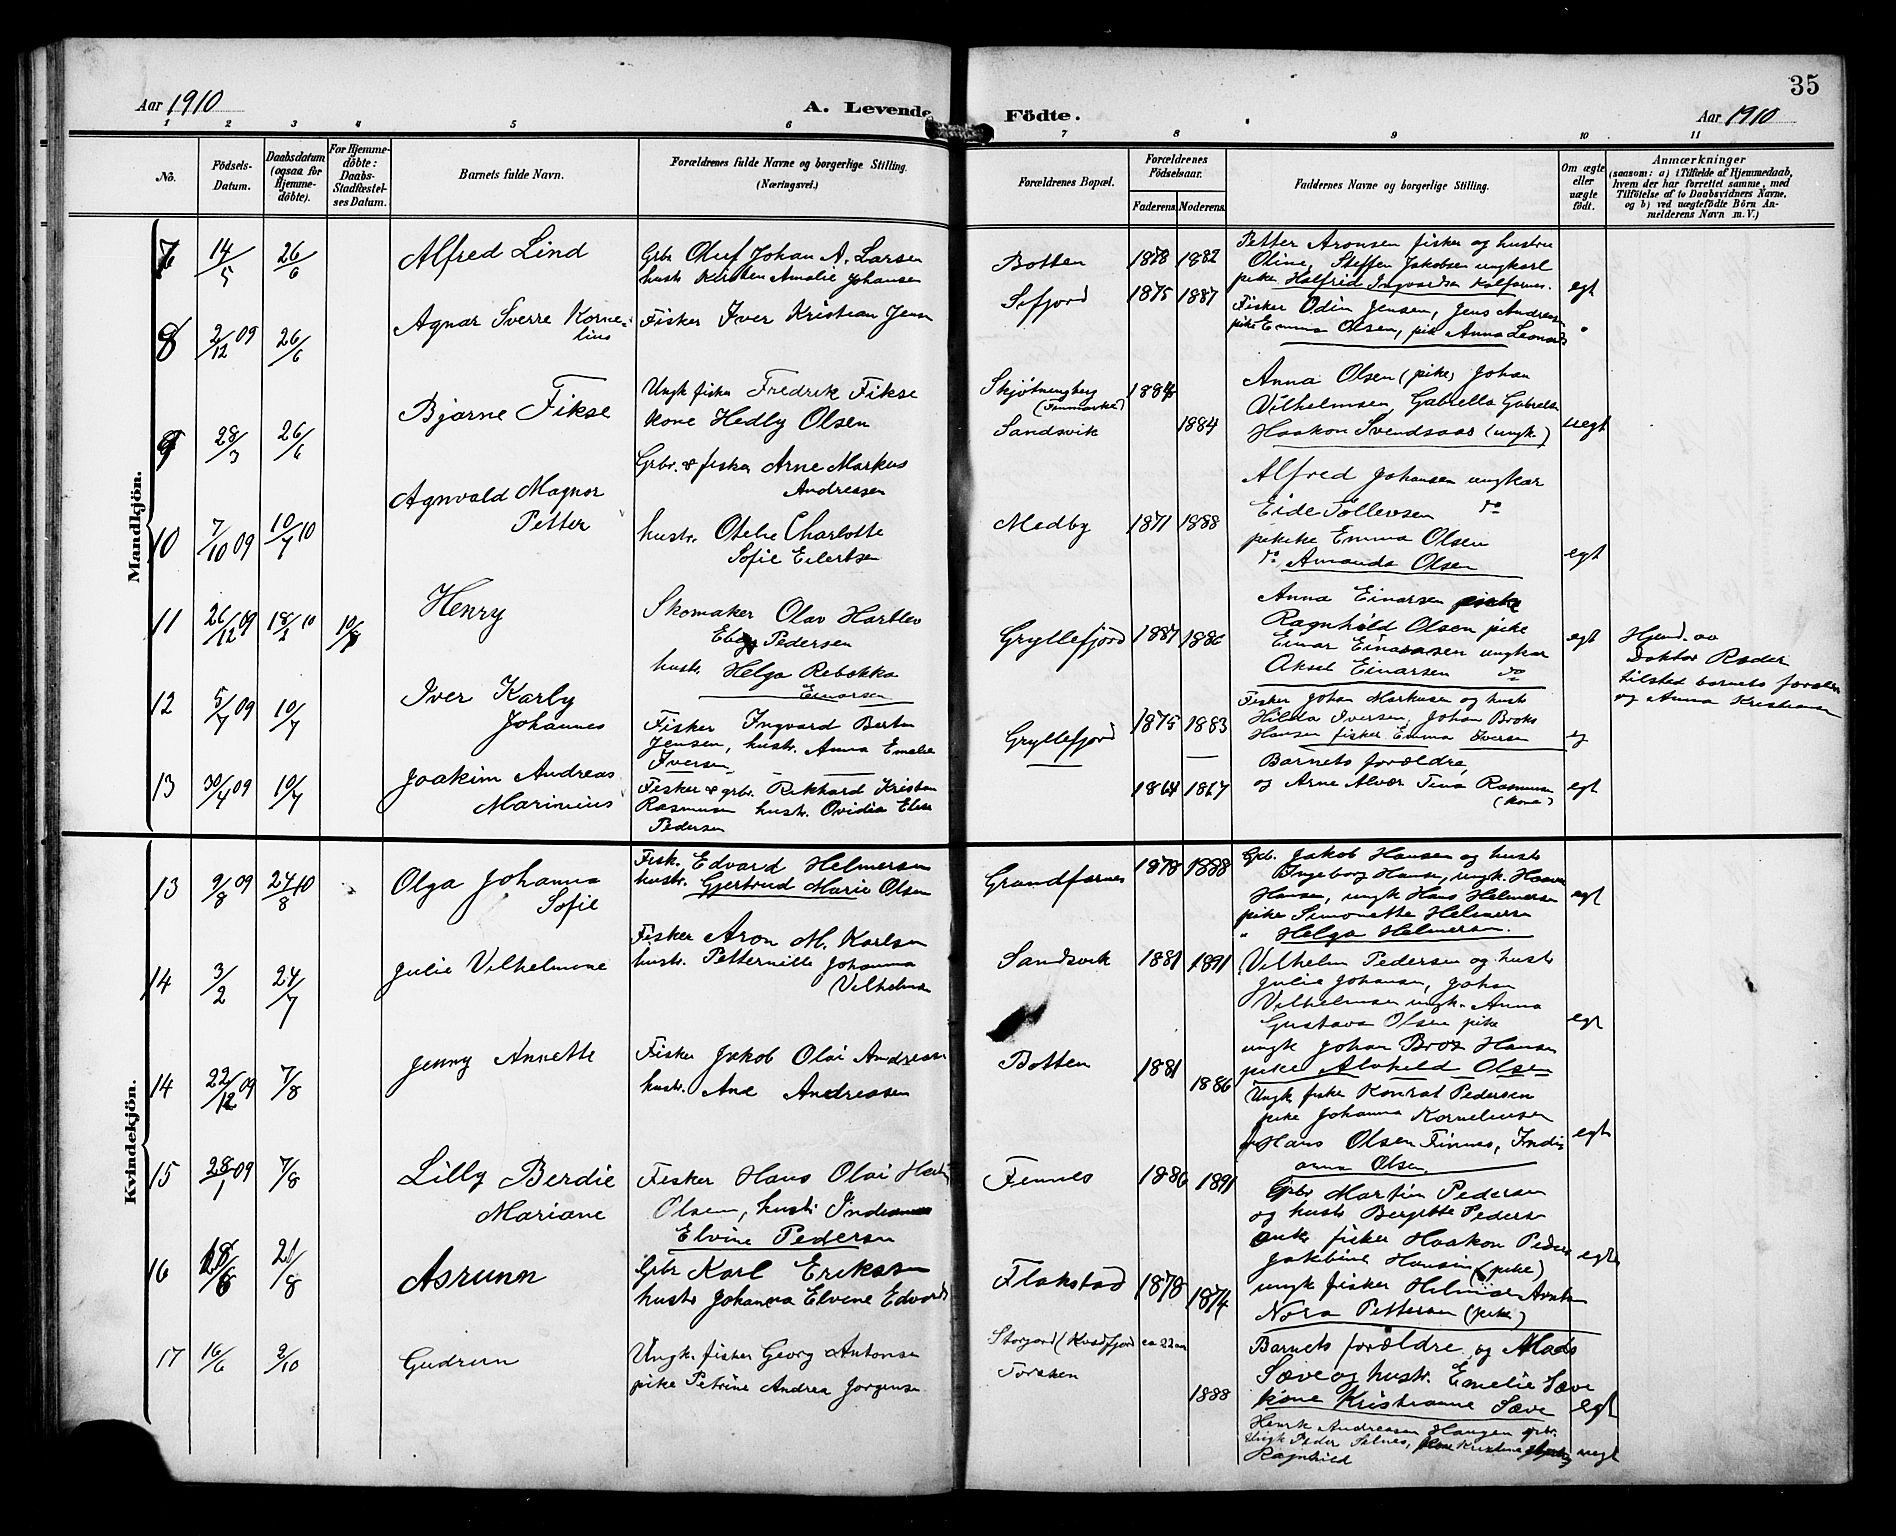 35
Aar 1910
A. Levende Födte.
Aar 1910
1 2 3 4 5 6 7 8 9 10 11
No.
Födsels-
Datum.
Daabsdatum
(ogsaa for
Hjemme-
döbte).
For Hjemme-
döbte:
Daabs-
Stadfæstel-
ses Datum.
Barnets fulde Navn.
Forældrenes fulde Navne og borgerlige Stilling.
(Næringsvei.)
Forældrenes Bopæl.
Forældrenes
Födselsaar.
Faderens. Moderens.
Faddernes Navne og borgerlige Stilling.
Om ægte
eller
uægte
födt.
Anmærkninger
(saasom: a) i Tilfælde af Hjemmedaab,
hvem der har forrettet samme, med
Tilföielse af to Daabsvidners Navne,
og b) ved uægtefödte Börn An-
melderens Navn m.V.)
Mandkjön.
7 14/5 26/6 Alfred Lind
Grbr Oluf Johan A. Larsen
hustr Kristen Amalie Johansen
Botten 1878 1882
Petter Aronsen fisker og hustru
Oline, Steffen Jakobsen ungkarl
pike Halfrid Ingvardsen Kolfarnes.
egt
8 2/12 09 26/6 Agnar Sverre Korne-
lius
Fisker Iver Kristian Jens
Sifjord 1875 1887
Fisker Odin Jensen, Jens Andreas
pike Emma Olsen, pik Anna Leonard
"
9 28/3 26/6 Bjarne Fikse
Ungk fisker Fredrik Fikse
kone Hedly Olsen
Skjøtningberg 1884
(Finmarken)
Sandsvik 1884
Anna Olsen (pike) Johan
Vilhelmsen, Gabrella Gabrels
Haakon Svendsaas (ungk.)
uegt
10 7/10 09 10/7 10 Agnvald Magnor
Petter
Grbr. & fisker Arne Markus
Andreasen
hustr. Otelie Charlotte
Sofie Eilertsen
Medby 1871 1888
Alfred Johansen ungkar
Eide Tollevsen do
pikike Emma Olsen
do Amanda Olsen
egt
11 26/12 09 18/2 10 10/8 Henry
Skomaker Olav Hartlev
Pedersen
hustr. Helga Rebekka
Einarsen
Gryllefjord 1887 1886
Anna Einarsen pike
Ragnhild Olsen pike
Einar Einarsen ungkar
Aksel Einarsen do
egt
Hjemd. av
Doktor Rader
tilsted barnets forældre
og Anna Kristiansen
12 5/7 09 10/7 Iver Karly
Johannes
Fisker Ingvard Berten
Jensen, hustr. Anna Emelie
Iversen
Gryllefjord 1875 1883
Fisker Johan Markusen og hustr
Hilda Iversen, Johan Broks
Hansen fisker Emma Iversen
eg
13 30/4 09 10/7 Joakim Andreas
Marinius
Fisker & grbr. Rikhard Kristen
Rasmusen hustr. Ovidia Elen
Pedersen
— 1864 1867
Barnets forældre,
og Arne Alvær Tina Rasmusen
(kone)
egt
Kvindekjön.
13 9/8 09 24/8 10 Olga Johanna
Sofie
Fisk. Edvard Helmersen
hustr. Gjertrud Marie Olsen
Grundfarnes 1878 1888
Grb. Jakob Hansen og hustr
Ingeborg Hansen, ungk. Haavar
Hansen, ungk Hans Helmersen
pike Simonette Helmersen
" Helga Helmersen.
egt
14 3/2 24/7 Julie Vilhelmine
Fisker Aron M. Karlsen
hustr. Petternille Johanna
Vilhelmsen
Sandsvik 1881 1891
Vilhelm Pedersen og hustr
Julie Johansen, Johan
Vilhelmsen ungk. Anna
Gustava Olsen pike
egt
14 22/12 09 7/8 Jenny Annette
Fisker Jakob Olai Andreasen
hustr. Ane Andreasen
Botten 1881 1886
ungk Johan Brox Hansen
pike Alvhild Olsen
Ungk fisker Konrat Pedersen
pike Johanna Korneliusen
egt
15 28/1 09 7/8 Lilly Berdie
Mariane
Fisker Hans Olai
Olsen, hustr Indianna
Elvine Pedersen
Finnes 1886 1891
Hans Olsen Finnes, Indi-
anna Olsen.
Grbr Martin Pedersen
og hustr Bergitte Pedersen
enke fisker Haakon Peders
Jakobine Hansen (pike)
egt
16 18/6 21/8 Asrunn
Grbr Karl Eriksen
hustr Johanna Elvine Edvards
Flakstad 1878 1874
ungk fisker Helmer
Nora Pettersen (pike)
Barnets forældre og Mads
Sæve og hustr. Emelie Sæve
kone Kristianne Sæve
egt
17 16/6 2/10 Gudrun
Ungk. fisker Georg Antonsen
pike Petrine Andrea Jörgensen
Storjord (Kvædfjord ca 22 aar
Torsken 1888
Henrik Andreasen Haugen grbr.
Ungk Peder Selnes, Kristine
Ragnhild
uegt